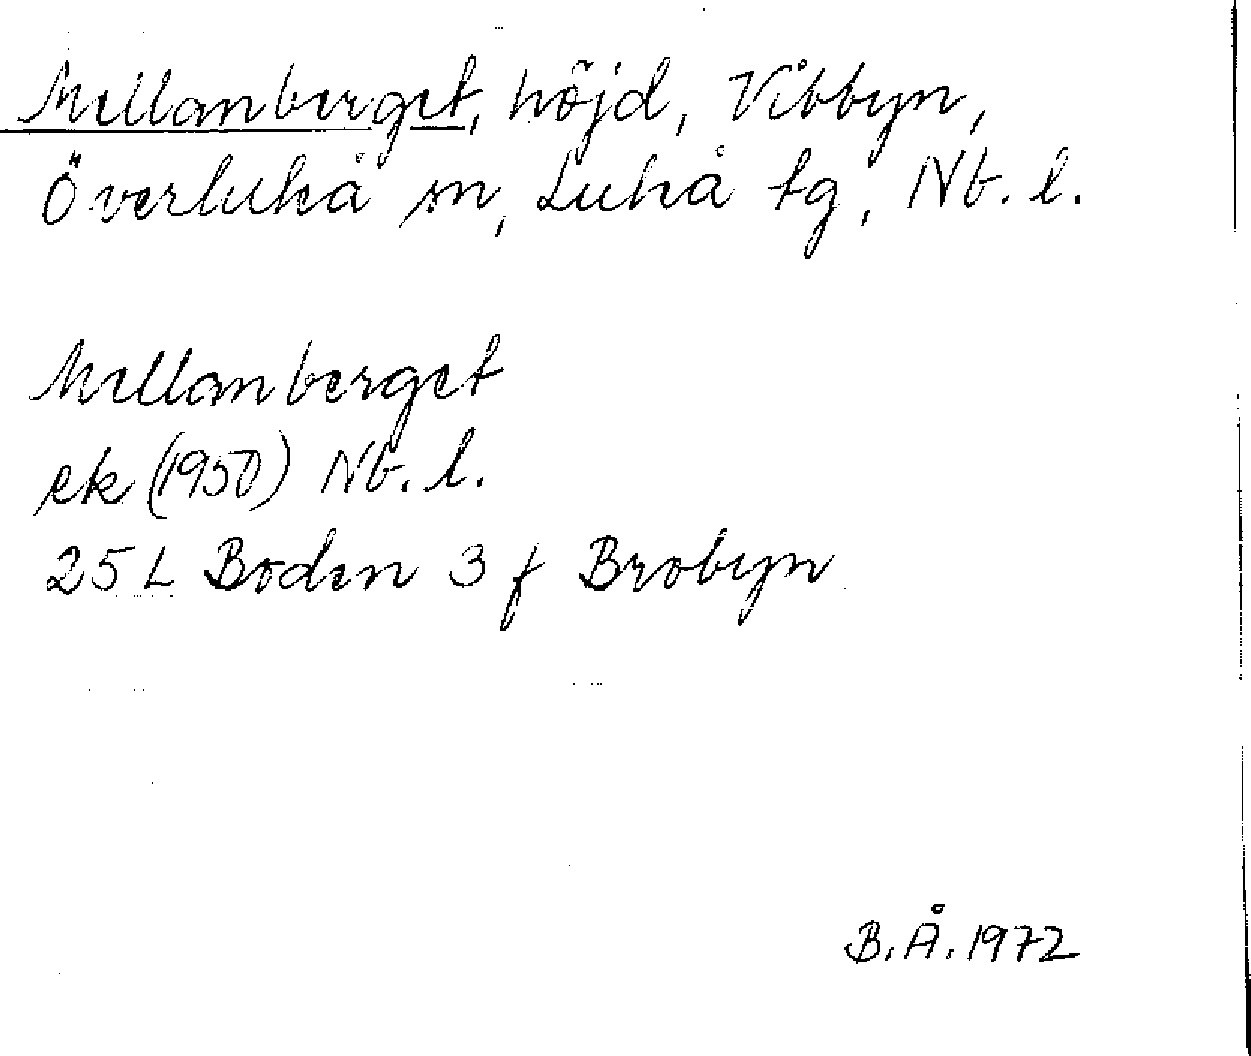 Mellanberget, höjd, Vibbyn,
Överluleå sn, Luleå tg, Nb. l.
Mellanberget
ek (1950) Nb. l.
25 L Boden 3 f Brobyn
B.Å. 1972